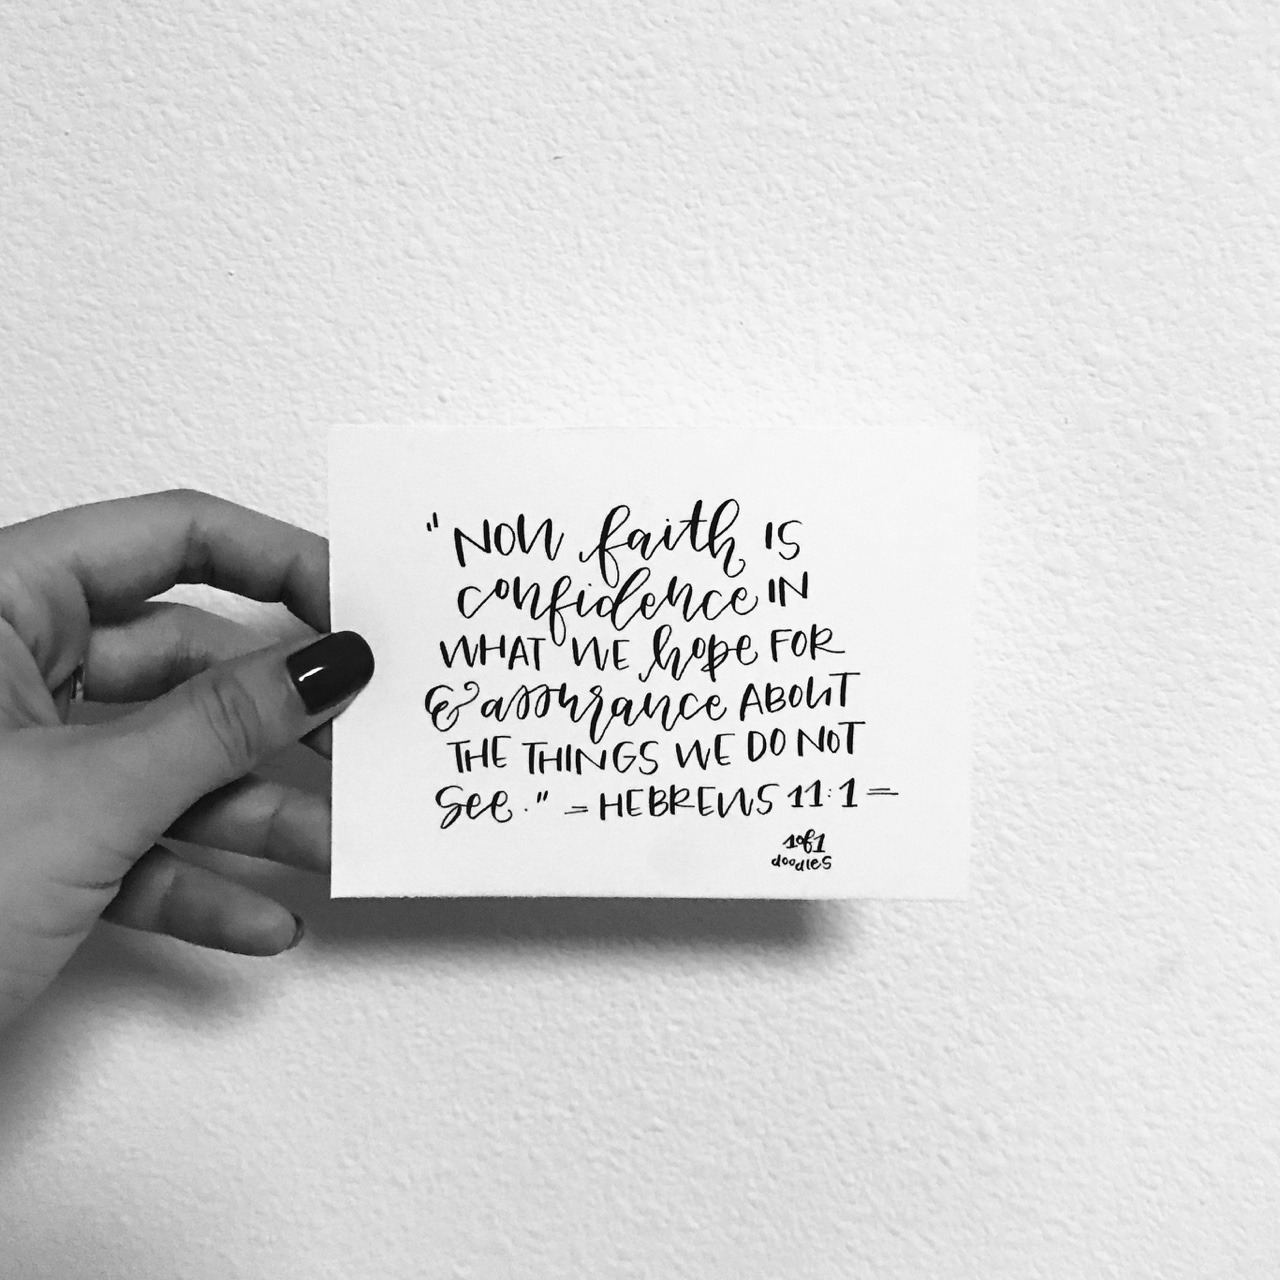 "NOW faith IS
confidence IN
WHAT WE hope FOR
& assurance ABOUT
THE THINGS WE DO NOT
see." = HEBREWS 11:1 =
1of1
doodles